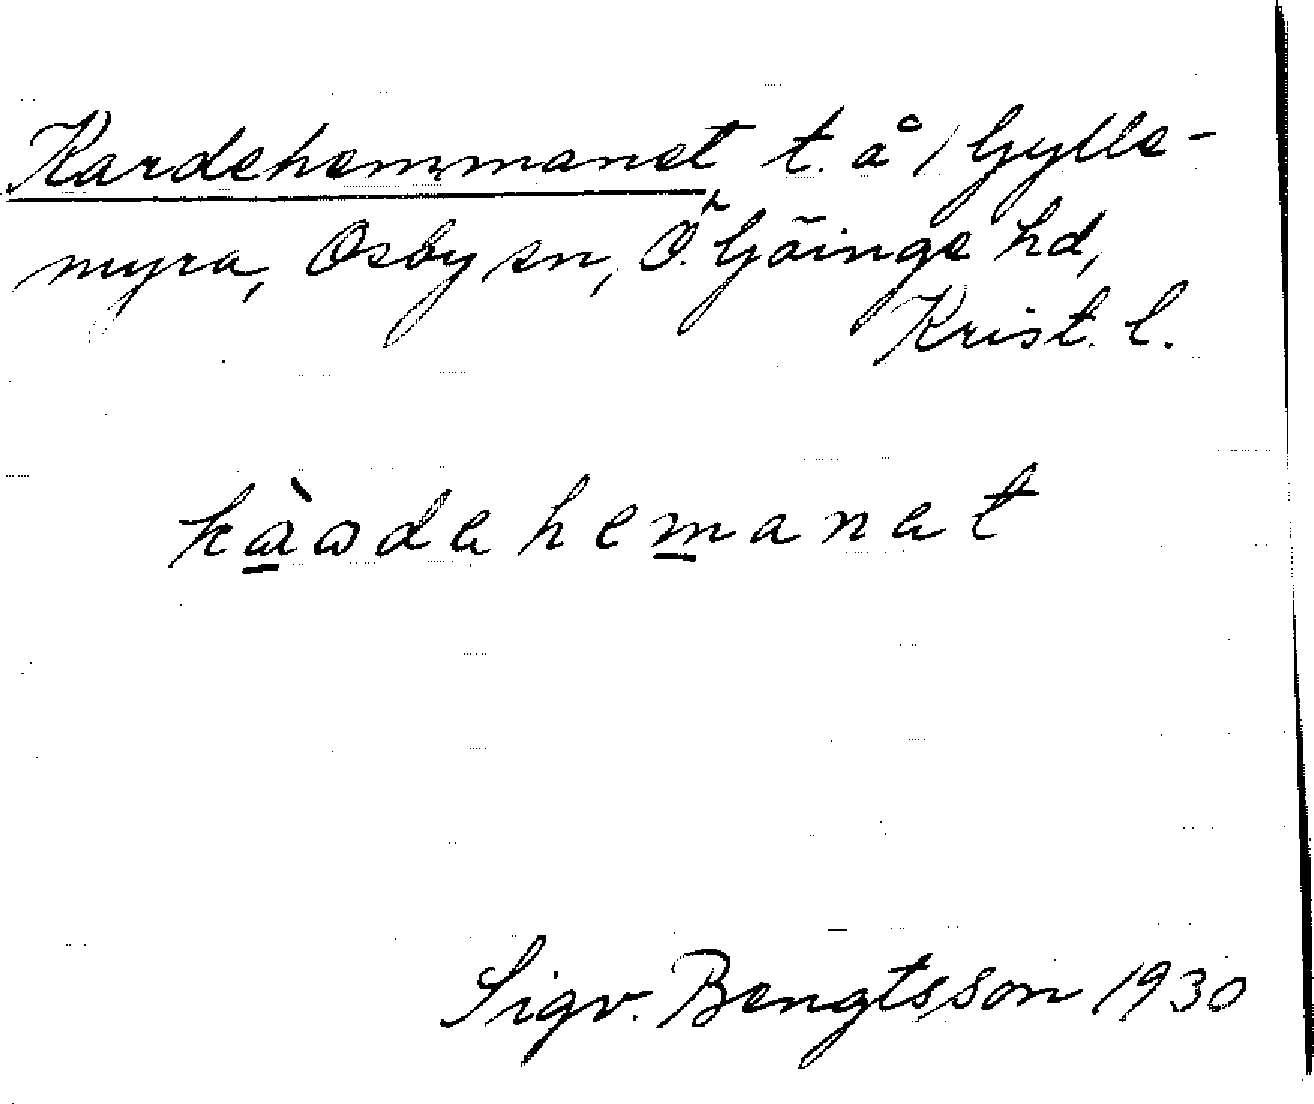 Kardehemmanet t. å 1 Gylle-
myra, Osby sn, Ö. Göinge hd,
Krist. l.
Sigv. Bengtsson 1930